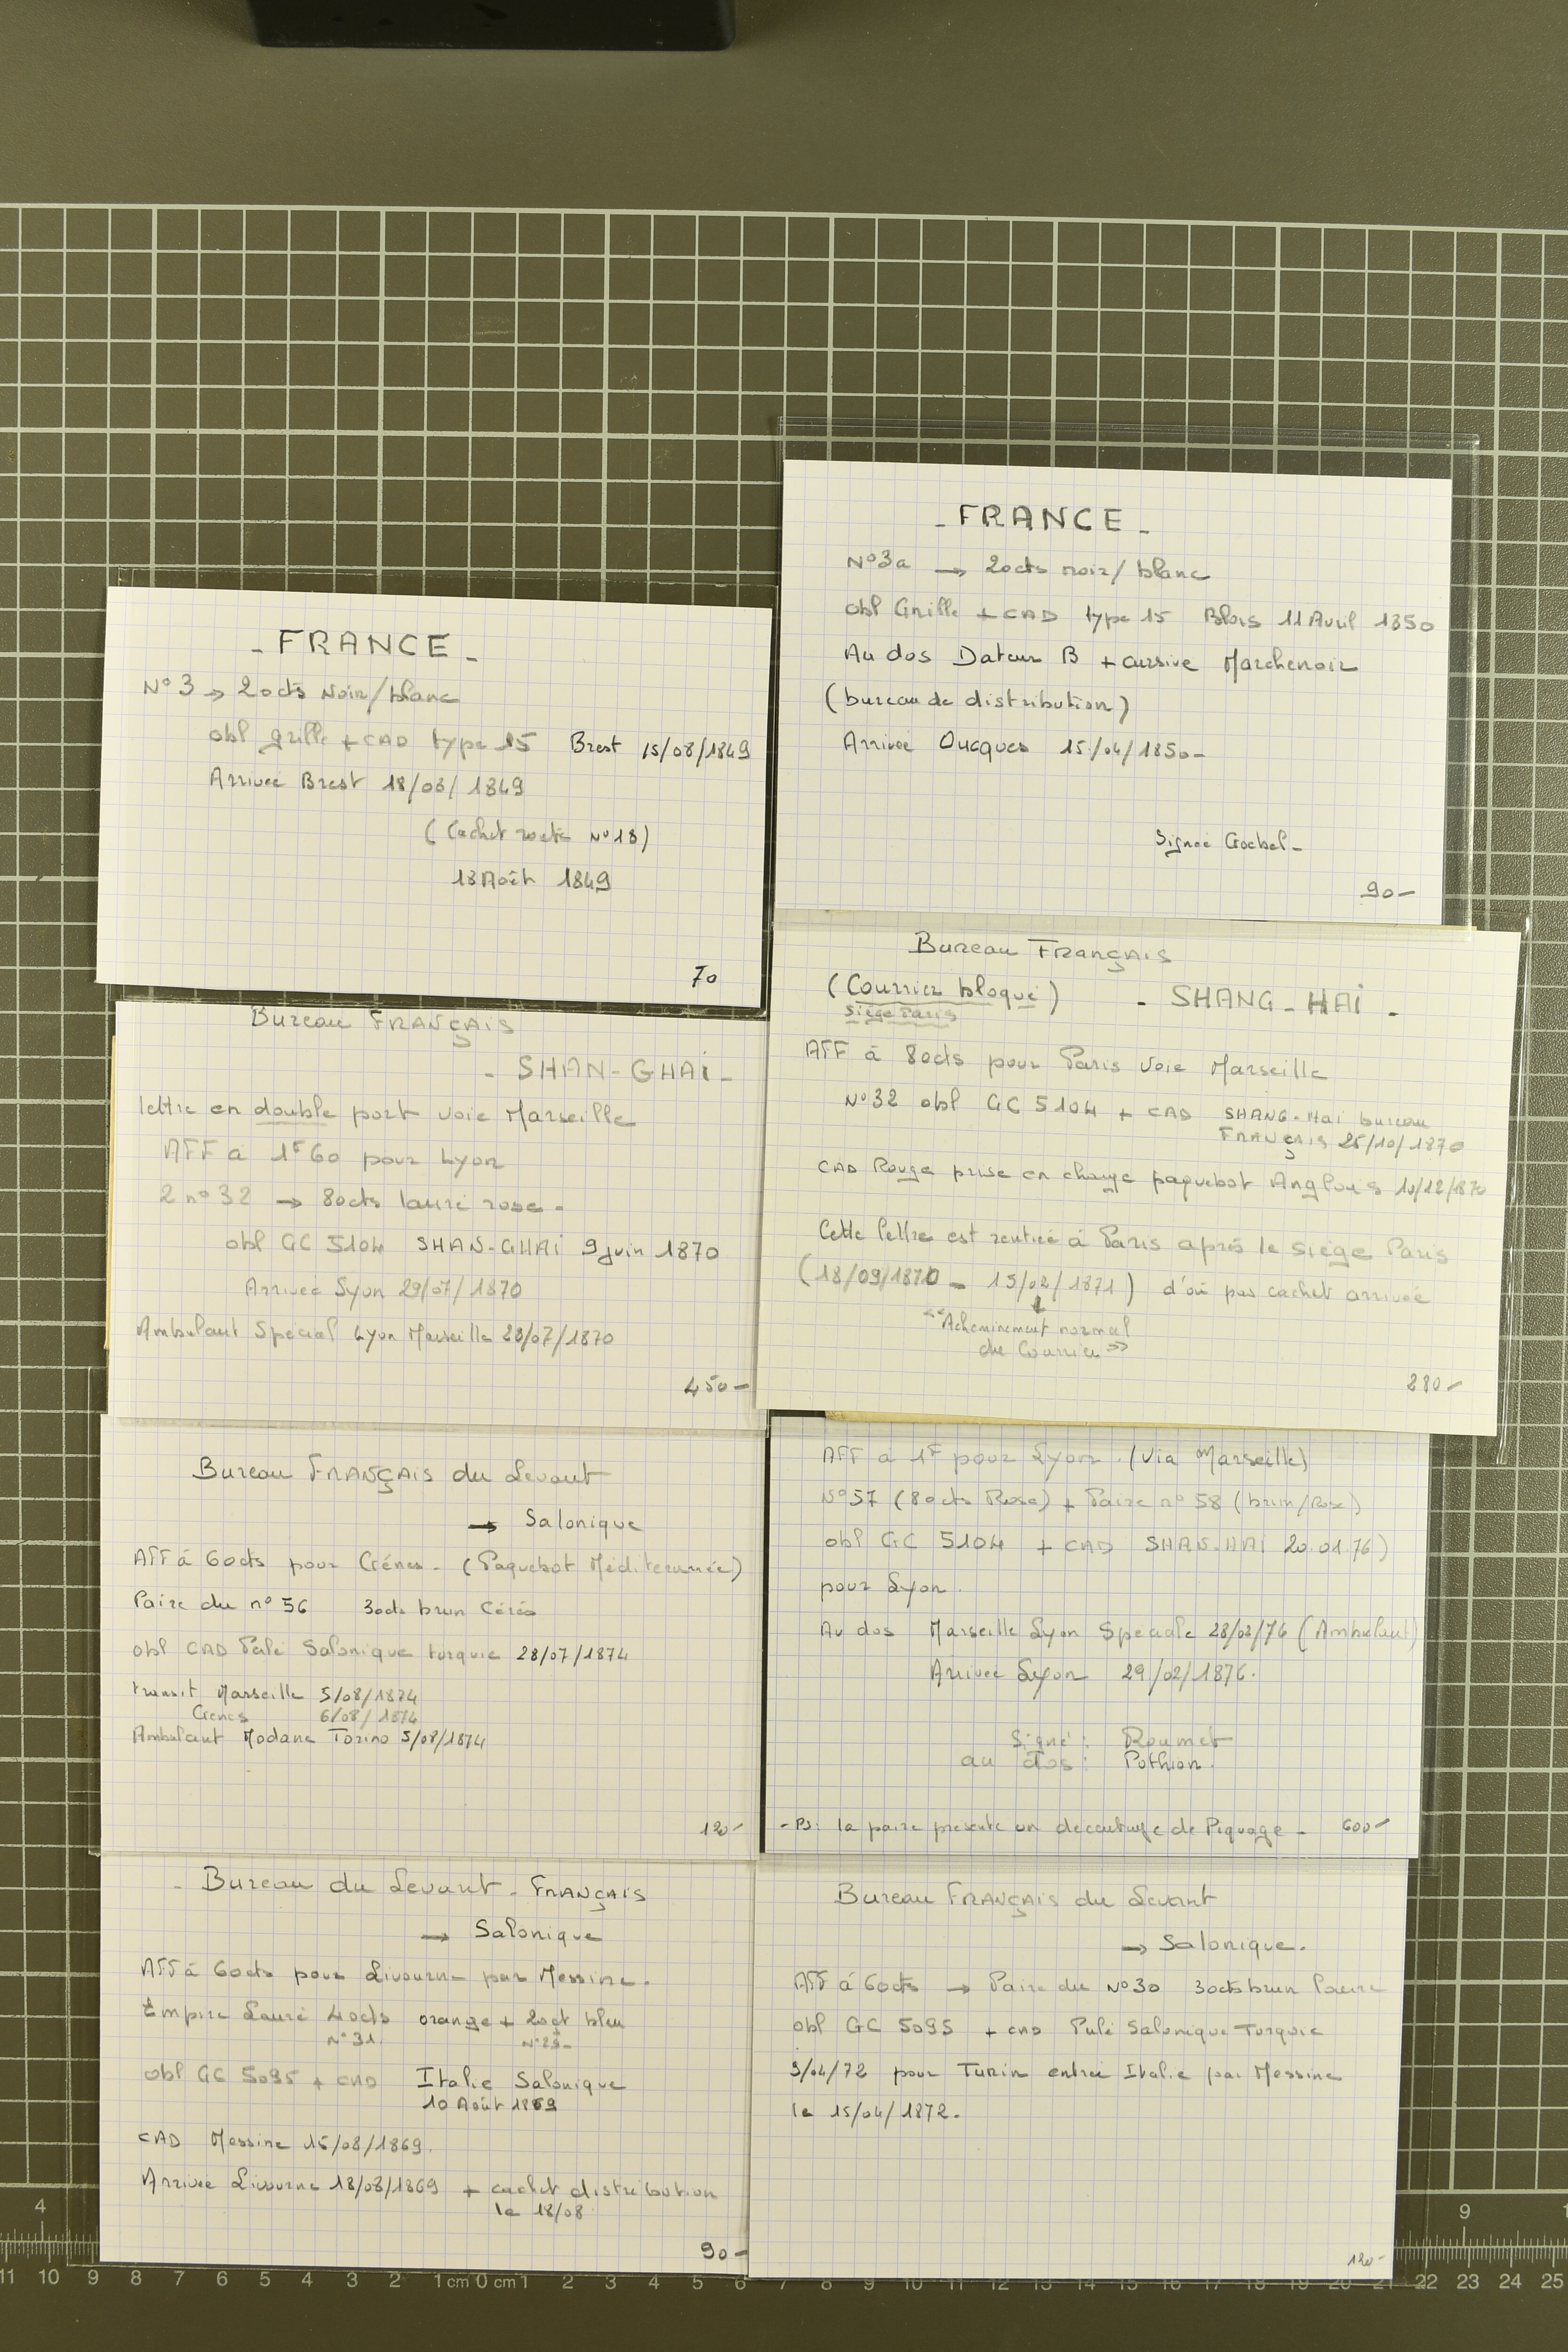 - FRANCE -
N° 3 → 20cts Noir/blanc
obl grille + CAD type 15 Brest 15/08/1849
Arrivée Brest 18/08/1849
(Cachet N° 18)
18 Août 1849
70
- FRANCE -
N° 3a → 20cts noir/blanc
obl Grille + CAD type 15 Blois 11 Avril 1850
Au dos Dateur B + cursive Marchenoir
(bureau de distribution)
Arrivée Oucques 15/04/1850-
Signée Goebel-
90-
Bureau FRANÇAIS
- SHAN-GHAi -
lettre en double port voie Marseille
AFF à 1F60 pour Lyon
2 n° 32 → 80cts lauré rose-
obl GC 5104 SHAN-GHAI 9 juin 1870
Arrivée Lyon 29/07/1870
Ambulant Spécial Lyon Marseille 28/07/1870
450-
Bureau FRANÇAIS
(Courrier bloqué)
siège Paris
- SHANG-HAi -
AFF à 80cts pour Paris voie Marseille
N° 32 obl GC 5104 + CAD SHANG-Hai bureau
FRANÇAIS 25/10/1870
CAD Rouge prise en charge paquebot Anglais 10/12/1870
Cette lettre est rentrée à Paris après le siège Paris
(18/09/1870 - 15/02/1871) d'où pas cachet arrivée
"Acheminement normal
du Courrier"
280-
Bureau FRANÇAIS du Levant
→ Salonique
AFF à 60cts pour Gênes - (Paquebot Méditerranée)
Paire du n° 56 30cts brun Cérès
obl CAD Perlé Salonique turquie 28/07/1874
transit Marseille 5/08/1874
Gênes 6/08/1874
Ambulant Modane Torino 5/08/1874
120-
AFF à 1F pour Lyon. (via Marseille)
N° 57 (80cts Rose) + Paire n° 58 (brun/Rose)
obl GC 5104 + CAD SHAN-HAI 20.01.76)
pour Lyon.
Au dos Marseille Lyon Spéciale 28/02/76 (Ambulant)
Arrivée Lyon 29/02/1876.
Signé : Roumet
au dos : Pothion.
- PS: la paire présente un décentrage de Piquage - 600-
- Bureau du Levant - FRANÇAIS
→ Salonique
AFF à 60cts pour Livourne par Messine.
Empire Lauré 40cts orange + 20ct bleu
N° 31. N° 29-
obl GC 5095 + CAD Italie Salonique
10 Août 1869
CAD Messine 15/08/1869.
Arrivée Livourne 18/08/1869 + cachet distribution
le 18/08
90-
Bureau FRANÇAIS du Levant
→ Salonique.
AFF à 60cts → Paire du N° 30 30cts brun Lauré
obl GC 5095 + CAD Perlé Salonique-Turquie
5/04/72 pour Turin entrée Italie par Messine
le 15/04/1872.
120-
4
9
11 10 9 8 7 6 5 4 3 2 1 cm 0 cm 1 2 3 4 5 6 7 8 9 10 11 12 13 14 15 16 17 18 19 20 21 22 23 24 25